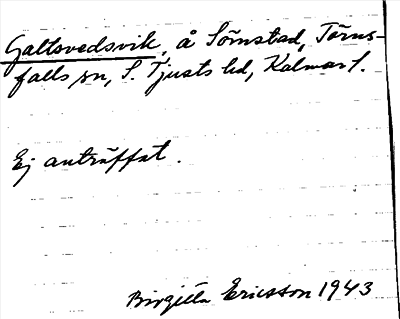 Galtsvedsvik, å Sömstad, Törns-
falls sn, S. Tjusts hd, Kalmar l.
Ej anträffat.
Birgitta Ericsson 1943